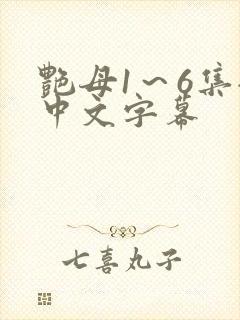 艳母1～6集
中文字幕
七喜丸子